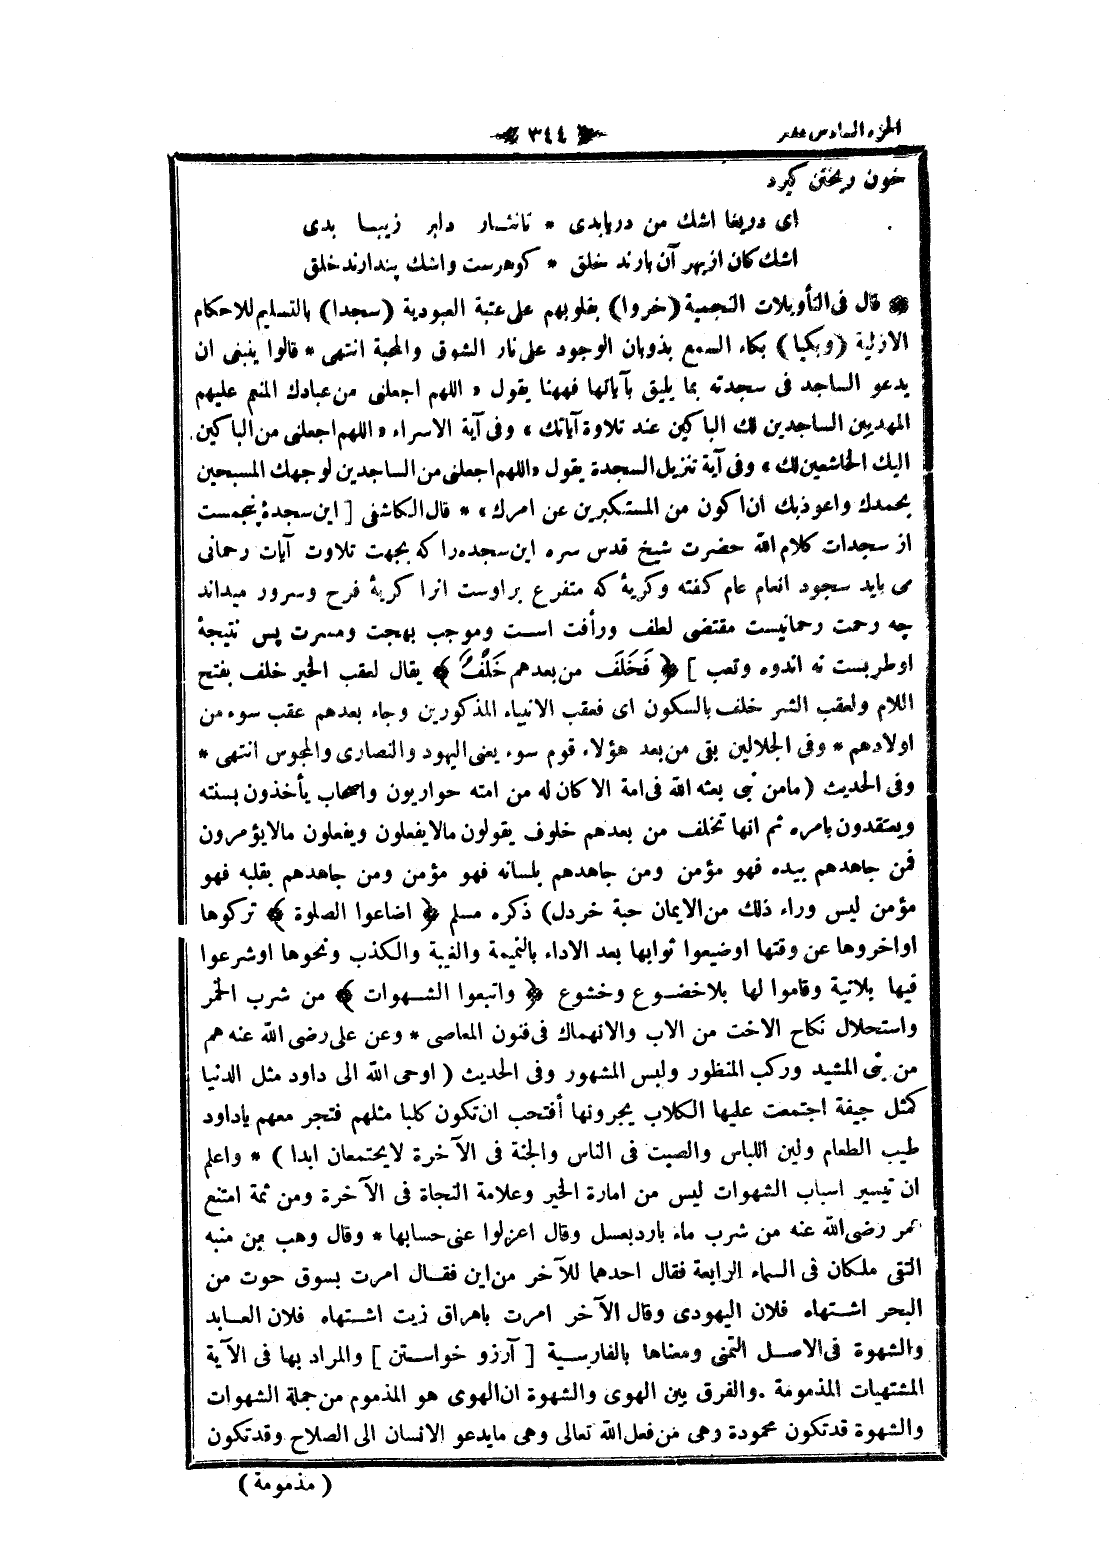 الجزء السادس عشر
﴿ ٣٤٤ ﴾
خون ريختن كيرد
اى دريغا اشك من دريابدى * تانثار دلبر زيبا بدى
اشك كان ازبهر آن بارند خلق * كوهرست واشك پندارند خلق
* قال فى التأويلات النجمية (خروا) بقلوبهم على عتبة العبودية (سجدا) بالتسليم للاحكام
الازلية (وبكيا) بكاء السمع بذوبان الوجود على نار الشوق والمحبة انتهى * قالوا ينبغى ان
يدعو الساجد فى سجدته بما يليق بآياتها فههنا يقول « اللهم اجعلنى من عبادك المنعم عليهم
المهديين الساجدين لك الباكين عند تلاوة آياتك » وفى آية الاسراء « اللهم اجعلنى من الباكين
اليك الخاشعين لك » وفى آية تنزيل السجدة يقول «اللهم اجعلنى من الساجدين لوجهك المسبحين
بحمدك واعوذبك ان اكون من المستكبرين عن امرك» * قال الكاشفى [ اين سجدۀ پنجمست
از سجدات كلام الله حضرت شيخ قدس سره اين سجده را كه بجهت تلاوت آيات رحمانى
مى بايد سجود انعام عام كفته وكريۀ كه متفرع براوست انرا كريۀ فرح وسرور ميداند
چه رحمت رحمانيست مقتضى لطف ورأفت است وموجب بهجت ومسرت پس نتيجۀ
اوطربست نه اندوه وتعب ] ﴿ فَخَلَفَ من بعدهم خَلْفٌ ﴾ يقال لعقب الخير خلف بفتح
اللام ولعقب الشر خلف بالسكون اى فعقب الانبياء المذكورين وجاء بعدهم عقب سوء من
اولادهم * وفى الجلالين بقى من بعد هؤلاء قوم سوء يعنى اليهود والنصارى والمجوس انتهى *
وفى الحديث ( مامن نبى بعثه الله فى امة الا كان له من امته حواريون واصحاب يأخذون بسنته
ويعتقدون بامره ثم انها تخلف من بعدهم خلوف يقولون مالايفعلون ويفعلون مالايؤمرون
فمن جاهدهم بيده فهو مؤمن ومن جاهدهم بلسانه فهو مؤمن ومن جاهدهم بقلبه فهو
مؤمن ليس وراء ذلك من الايمان حبة خردل) ذكره مسلم ﴿ اضاعوا الصلوة ﴾ تركوها
اواخروها عن وقتها اوضيعوا ثوابها بعد الاداء بالنميمة والغيبة والكذب ونحوها اوشرعوا
فيها بلانية وقاموا لها بلاخضوع وخشوع ﴿ واتبعوا الشهوات ﴾ من شرب الخمر
واستحلال نكاح الاخت من الاب والانهماك فى فنون المعاصى * وعن على رضى الله عنه هم
من بنى المشيد وركب المنظور ولبس المشهور وفى الحديث ( اوحى الله الى داود مثل الدنيا
كمثل جيفة اجتمعت عليها الكلاب يجرونها أفتحب ان تكون كلبا مثلهم فتجر معهم ياداود
طيب الطعام ولين اللباس والصيت فى الناس والجنة فى الآخرة لايجتمعان ابدا ) * واعلم
ان تيسير اسباب الشهوات ليس من امارة الخير وعلامة النجاة فى الآخرة ومن ثمة امتنع
عمر رضى الله عنه من شرب ماء باردبعسل وقال اعزلوا عنى حسابها * وقال وهب بن منبه
التقى ملكان فى السماء الرابعة فقال احدهما للآخر من اين فقال امرت بسوق حوت من
البحر اشتهاه فلان اليهودى وقال الآخر امرت باهراق زيت اشتهاه فلان العابد
والشهوة فى الاصل التمنى ومعناها بالفارسية [ آرزو خواستن ] والمراد بها فى الآية
المشتهيات المذمومة . والفرق بين الهوى والشهوة ان الهوى هو المذموم من جملة الشهوات
والشهوة قدتكون محمودة وهى من فعل الله تعالى وهى مايدعو الانسان الى الصلاح وقدتكون
( مذمومة )